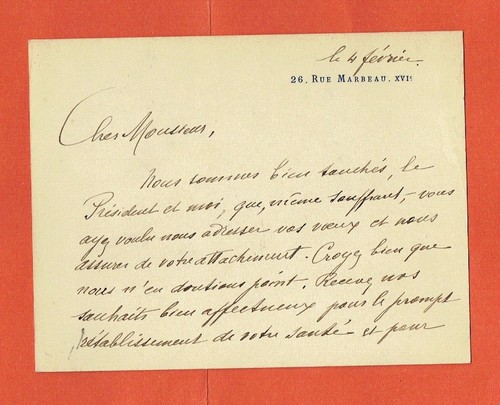 le 4 février.
26, Rue Marbeau, XVIe
Cher Monsieur,
Nous sommes bien touchés, le
Président et moi, que, même souffrant, vous
ayez voulu nous adresser vos vœux et nous
assurer de votre attachement. Croyez bien que
nous n'en doutions point. Recevez nos
souhaits bien affectueux pour le prompt
rétablissement de votre santé et pour